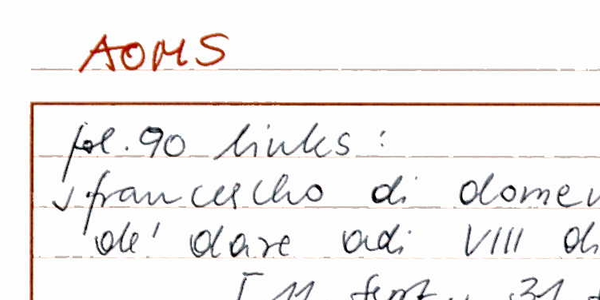 AOMS
fol. 90 links:
francescho di domen
de' dare adi VIII di
[ 11 sept., 31